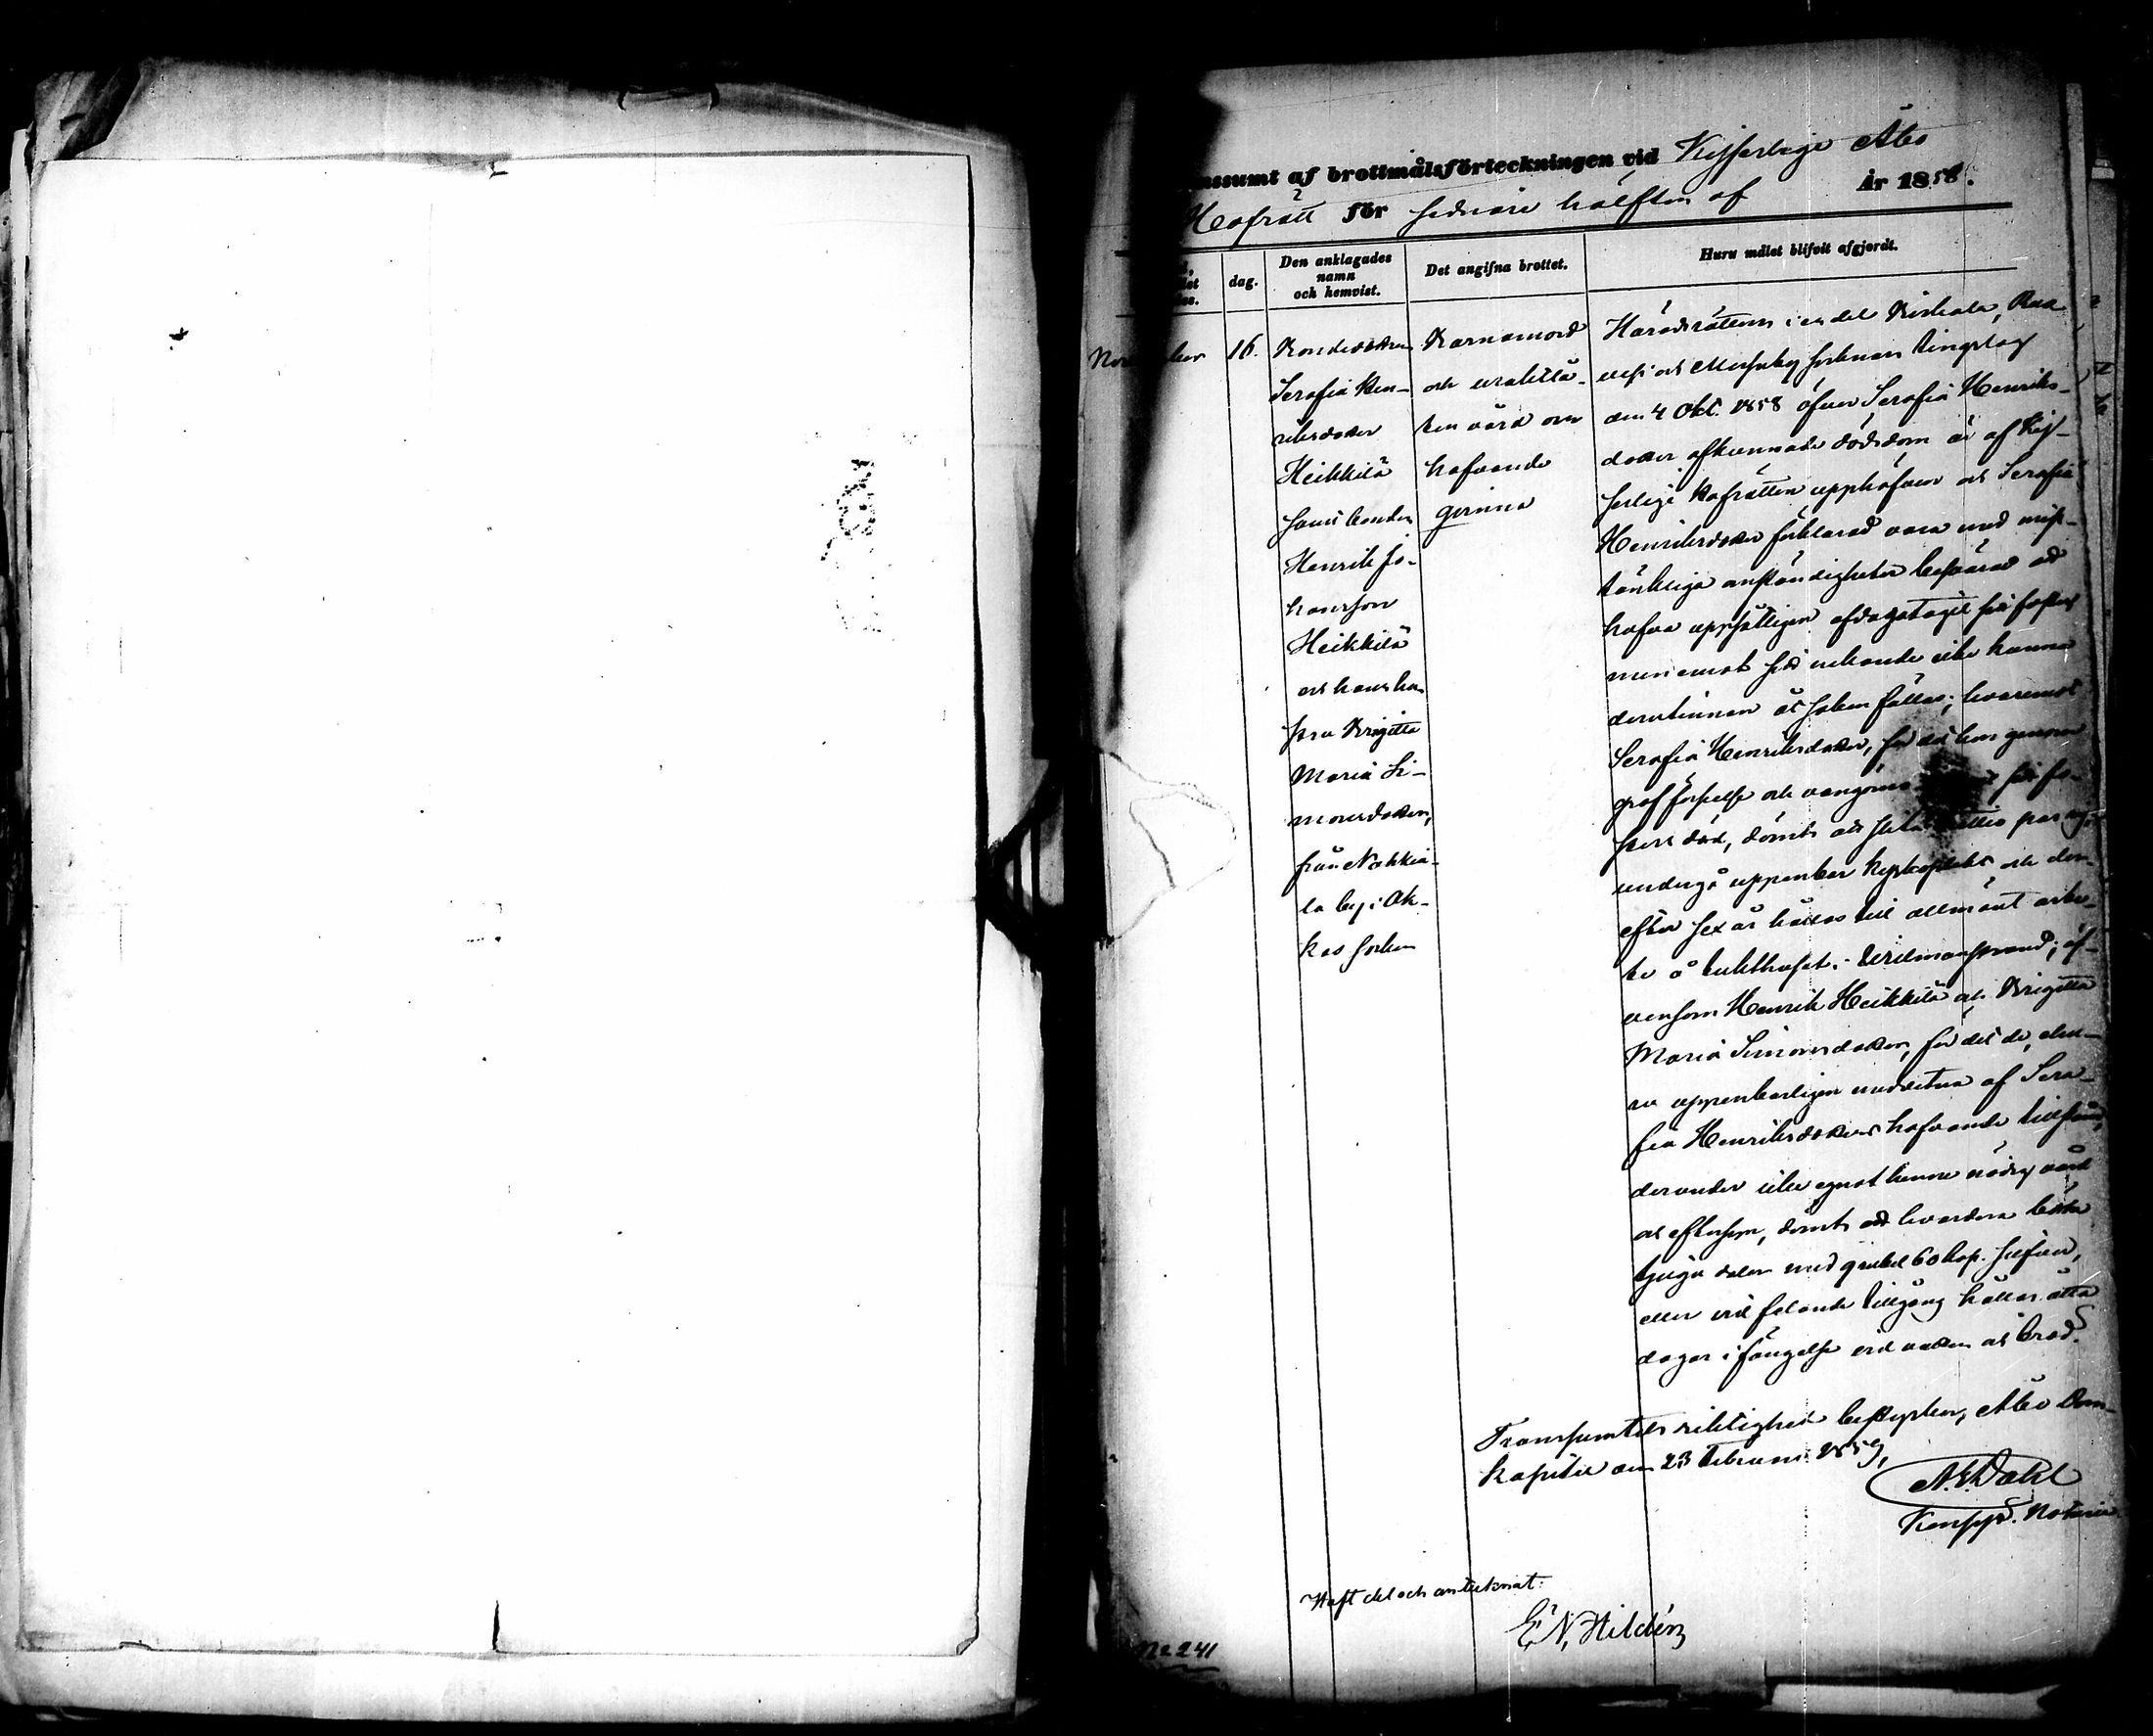 nssumt af brottmålsförteckningen vid Kejserlige Åbo
Hofrätt för sednare hälften af År 1858.
dag.
Den anklagades
namn
och hemvist.
Det angifna brottet.
Huru målet blifvit afgjordt.
16.
Bondedottren
Serafia Hen-
riksdotter
Heikkilä
samt bonden
Henrik Jo-
hansson
Heikkilä
och hans hu-
stru Brigitta
Maria Si-
monsdotter,
från Nahkia-
la by i Ak-
kas socken
Barnamord
och uraktlå-
ten vård om
hafvande
qvinna
Häradsrättens i en del
och socknars tingslag
den 4 Okt. 1858 öfver Serafia Henriks-
dotter afkunnade dödsdom är af Kej-
serlige Hofrätten upphäfven och Serafia
Henriksdotter förklarad vara med miss-
tänkliga omständigheter besvärad att
hafva uppsåtligen afdagatagit sitt foster
men emot sitt nekande icke kunna
derutinnan åt saken fällas; hvaremot
Serafia Henriksdotter, för det hon genom
grof förseelse och vangömmo sitt fo-
sters död, dömts att slita par ris,
undergå uppenbar kyrkoplikt och der-
efter sex år hållas till allmänt arbe-
te å tukthuset i Villmanstrand; äf-
vensom Henrik Heikkilä och Brigitta
Maria Simonsdotter, för det de, ehu-
ru uppenbarligen medvetna af Sera-
fia Henriksdotters hafvande tillstånd,
derunder icke egnat henne nödig vård
och eftersyn, dömts att hvardera böta
tjugu daler med 9 rubel 60 kop. silfver,
eller vid felande tillgång hållas åtta
dagar i fängelse vid vatten och bröd.
Transsumtets riktighet bestyrker, Åbo Dom-
kapitel den 23 Februari 1859,
A. E. Dahl
Konsist. Notarie
Haft del och antecknat:
E N, Hildén
No 241